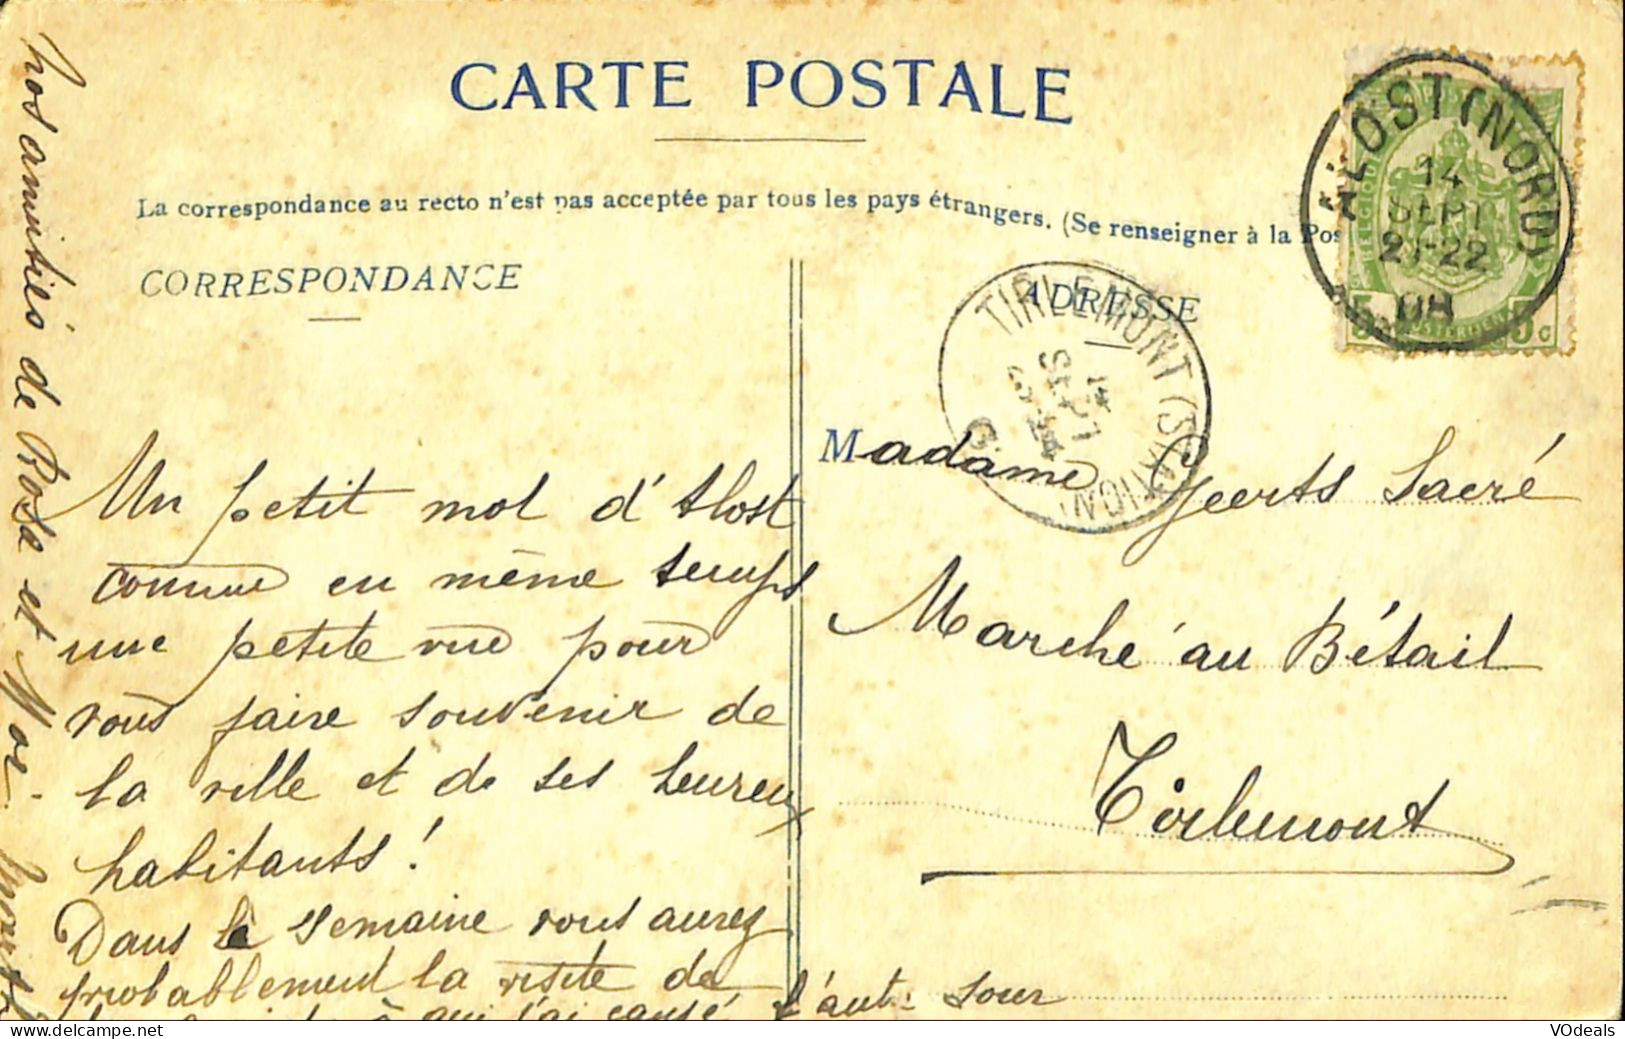 CARTE POSTALE
La correspondance au recto n'est pas acceptée par tous les pays étrangers. (Se renseigner à la Pos
CORRESPONDANCE
ADRESSE
ALOST (NORD)
14
SEPT
21-22
08
BELGIQUE
5 5 C
TIRLEMONT (STATION)
SEPT
Un petit mot d'Alost
comme en même temps
une petite vue pour
vous faire souvenir de
la ville et de ses heureux
habitants!
Dans la semaine vous aurez
probablement la visite de
à qui j'ai causé l'aut. jour
nos amitiés de Rosa et
Madame Geerts Sacré
Marché au Bétail
Tirlemont
VOdeals